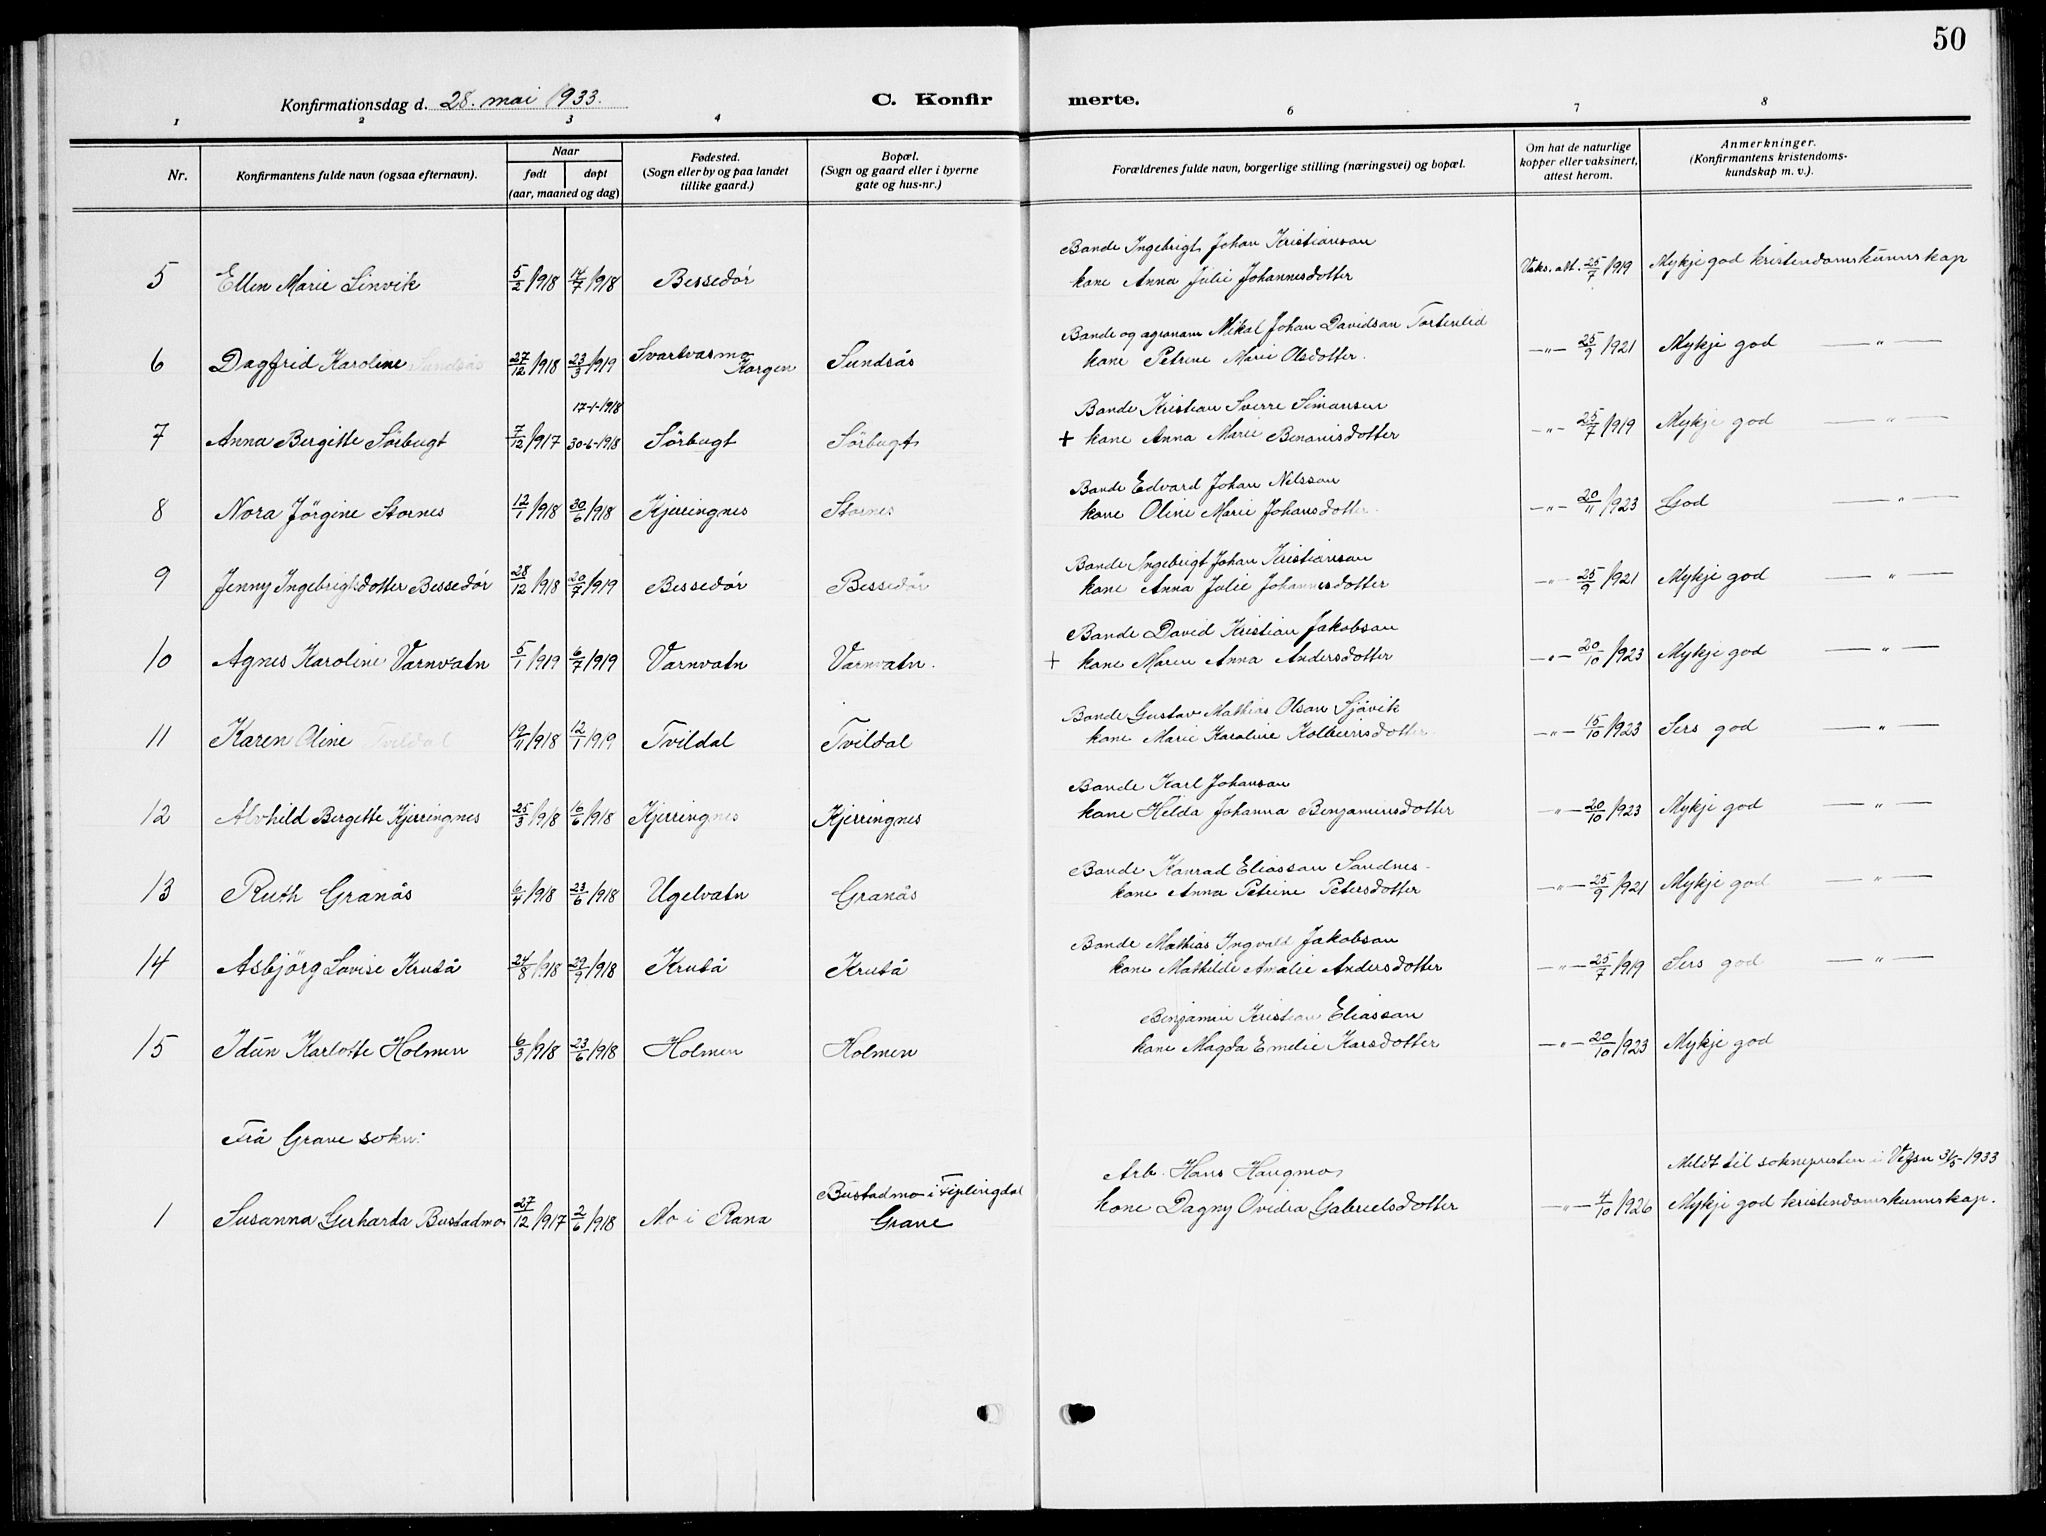 50
Konfirmationsdag d. 28. mai 1933.
C. Konfir
merte.
1 2 3 4 6 7 8
Nr.
Konfirmantens fulde navn (ogsaa efternavn).
Naar
født døpt
(aar, maaned og dag)
Fødested.
(Sogn eller by og paa landet
tillike gaard.)
Bopæl.
(Sogn og gaard eller i byerne
gate og hus-nr.)
Forældrenes fulde navn, borgerlige stilling (næringsvei) og bopæl.
Om hat de naturlige
kopper eller vaksinert,
attest herom.
Anmerkninger.
(Konfirmantens kristendoms-
kundskap m. v.).
Bonde Ingebrigt Johan Kristianson
5 Ellen Marie Linvik 5/2 1918 14/7 1918 Bessedør kone Anna Julie Johannesdotter Vaks. att. 25/7 1919 Mykje god kristendomskunnskap
Bonde og agronom Mikal Johan Davidson Tortenlid
6 Dagfrid Karoline Sundsås 27/12 1918 23/3 1919 Svartvasmo Korgen Sundsås kone Petrine Marie Olsdotter. -"- 25/9 1921 Mykje god -"-
17-1-1918 Bonde Kristian Sverre Simonsen
7 Anna Bergitte Sörbugt 7/12 1917 30-6-1918 Sörbugt Sörbugt + kone Anna Marie Benonisdotter -"- 25/7 1919 Mykje god -"-
Bonde Edvard Johan Nilsson
8 Nora Jörgine Stornes 12/1 1918 30/6 1918 Kjerringnes Stornes kone Oline Marie Johansdotter. -"- 20/11 1923 God -"-
Bonde Ingebrigt Johan Kristianson
9 Jenny Ingebrigtsdotter Bessedør 28/12 1918 20/7 1919 Bessedør Bessedør kone Anna Julie Johannesdotter -"- 25/9 1921 Mykje god -"-
Bonde David Kristian Jakobson
10 Agnes Karoline Varnvatn 5/1 1919 6/7 1919 Varnvatn Varnvatn. + kone Maren Anna Andersdotter -"- 20/10 1923 Mykje god -"-
Bonde Gustav Mathias Olson Sjåvik
11 Karen Oline Tvildal 19/11 1918 12/1 1919 Tvildal Tvildal kone Marie Karoline Kolbeinsdotter. -"- 15/10 1923 Sers god -"-
Bonde Karl Johanson
12 Alvhild Bergette Kjerringnes 25/3 1918 16/6 1918 Kjerringnes Kjerringnes kone Hilda Johanna Benjaminsdotter -"- 20/10 1923 Mykje god -"-
Bonde Konrad Eliasson Sandnes
13 Ruth Granås 6/4 1918 23/6 1918 Ugelvatn Granås kone Anna Petrine Petersdotter -"- 25/9 1921 Mykje god -"-
Bonde Mathias Ingvald Jakobson
14 Asbjörg Lovise Krutå 24/8 1918 29/9 1918 Krutå Krutå kone Mathilde Amalie Andersdotter -"- 25/7 1919 Sers god -"-
Benjamin Kristian Eliasson
15 Idun Karlotte Holmen 6/3 1918 23/6 1918 Holmen Holmen kone Magda Emelie Larsdotter -"- 20/10 1923 Mykje god
Frå Grane sokn:
Arb. Hans Haugmo Meldt til soknepresten i Vefsn 31/5-1933
1 Susanna Gerharda Bustadmo 27/12 1917 2/6 1918 Mo i Rana Bustadmo i Fiplingdal Grane kone Dagny Ovidia Gabrielsdotter -"- 4/10 1926 Mykje god kristendomskunnskap.